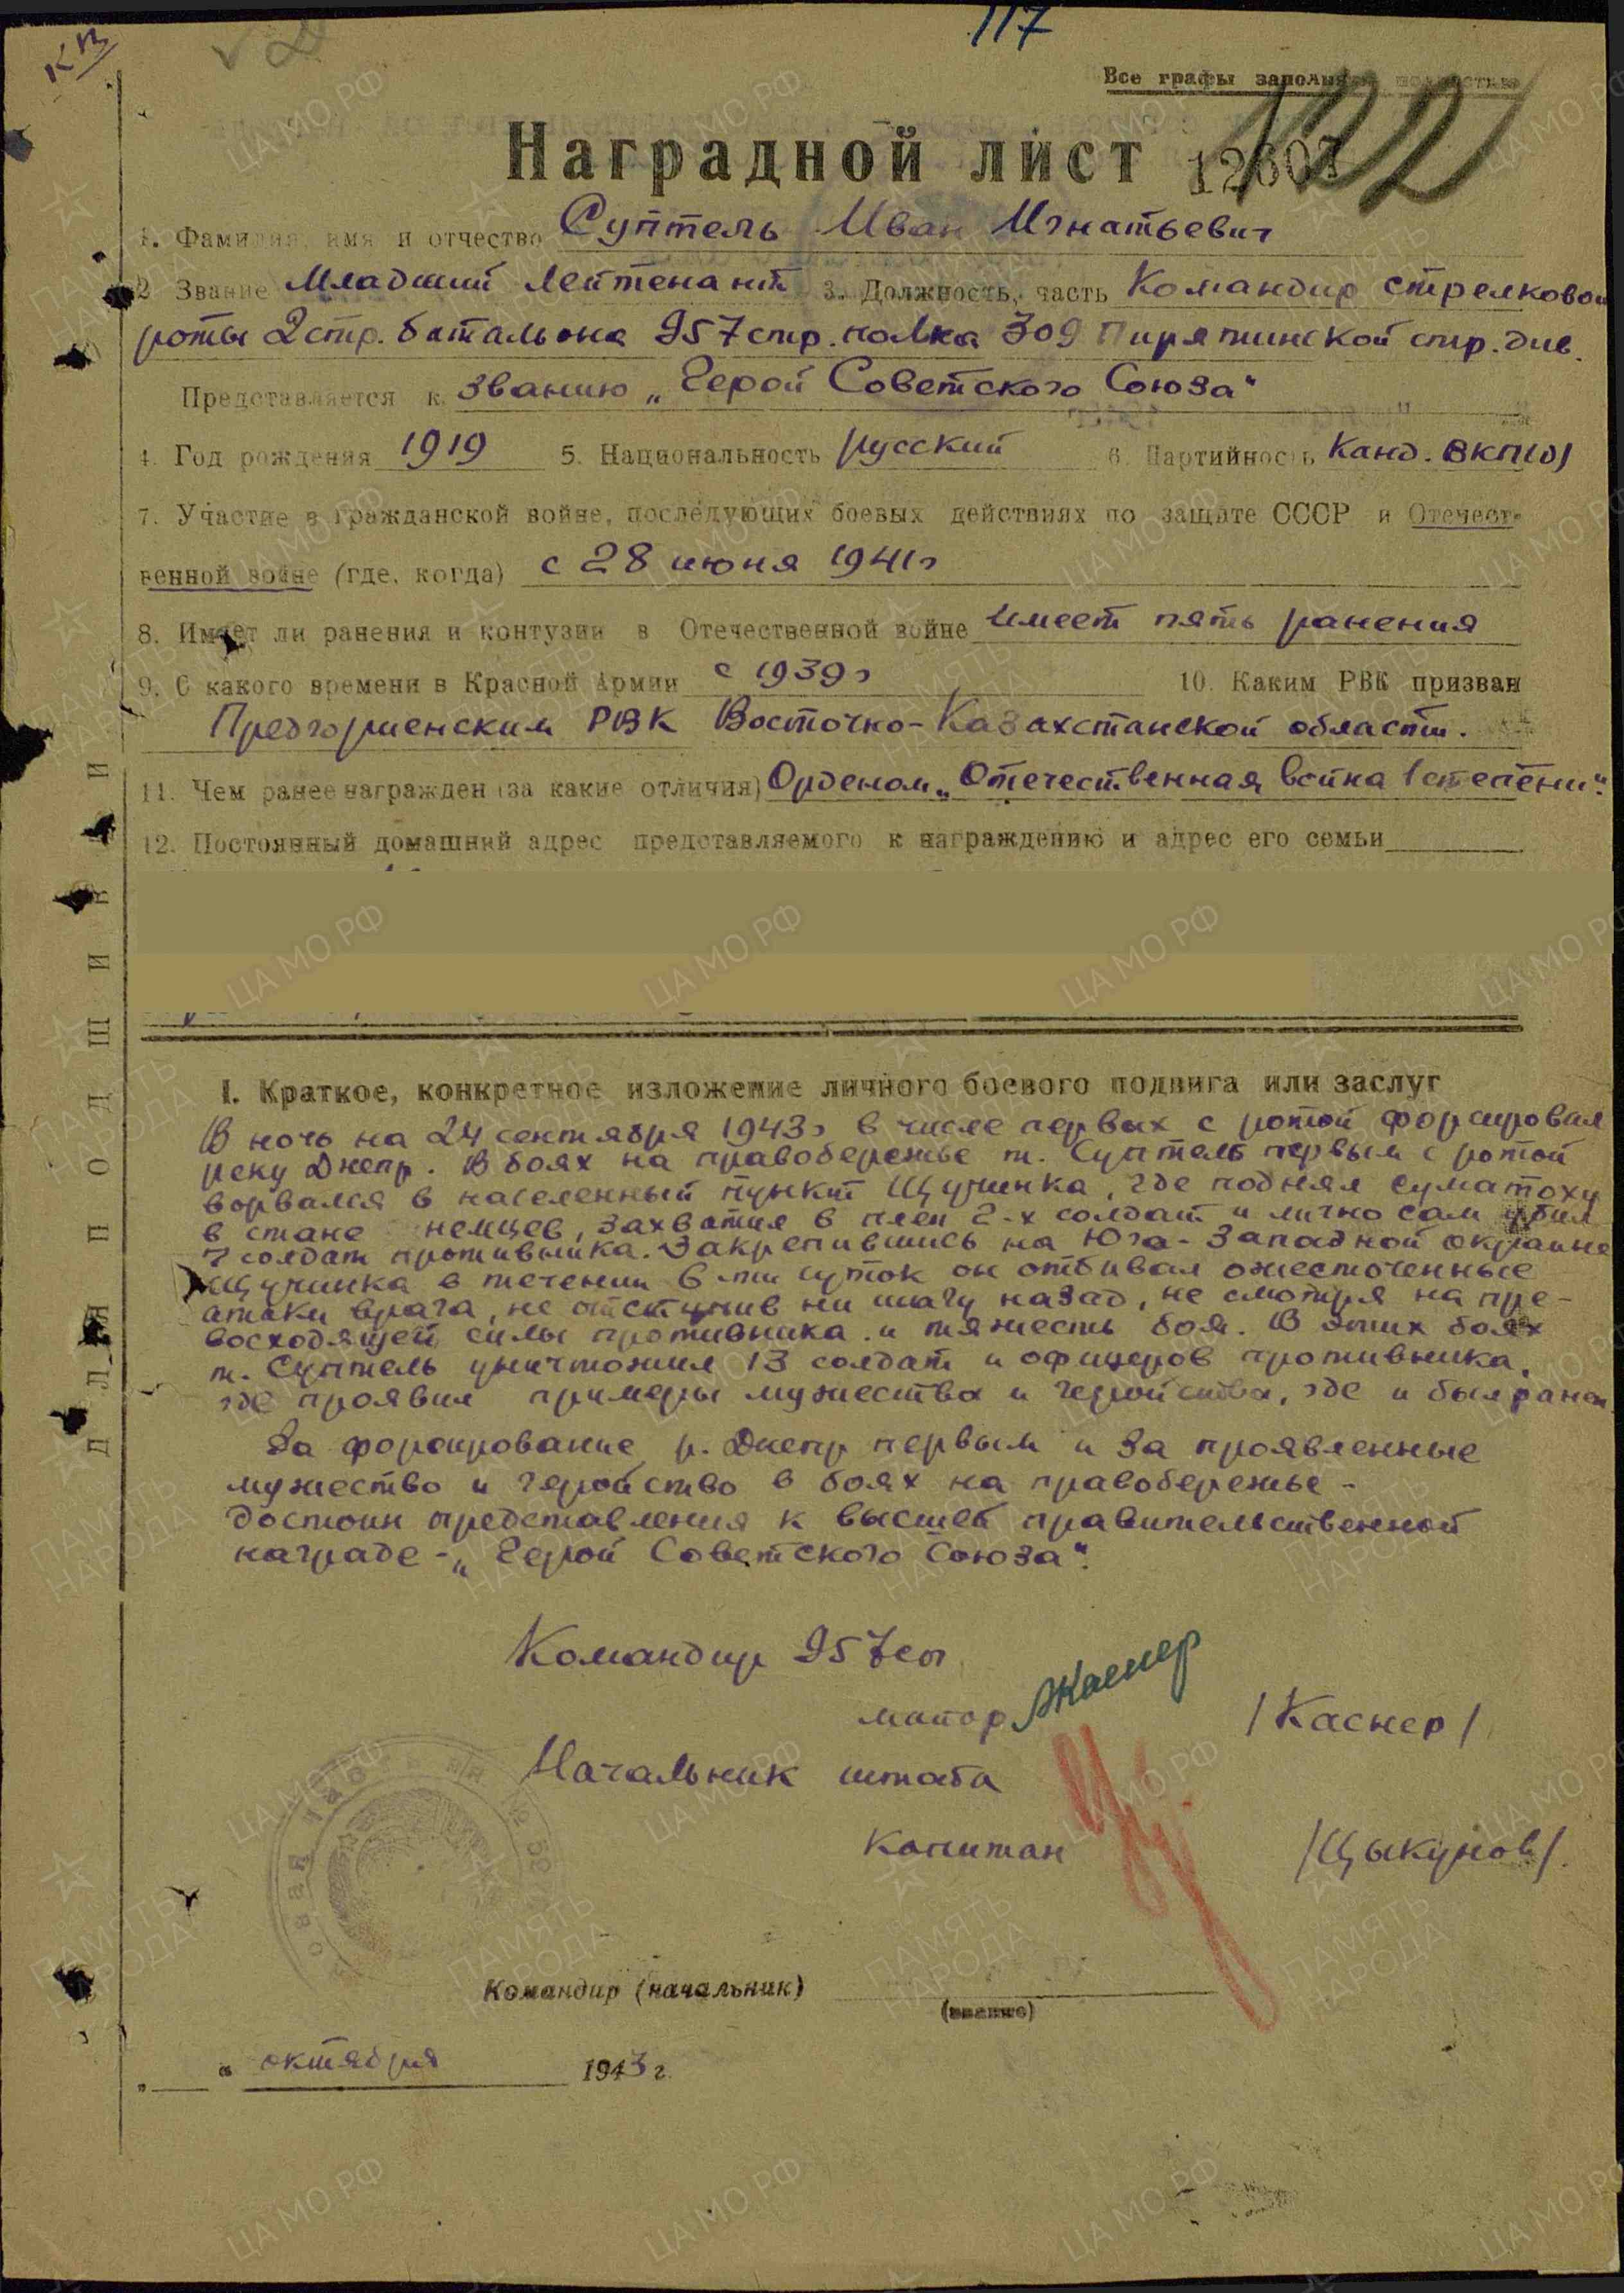 КВ
117
Все графы заполня
122
Наградной лист 12607
1. Фамилия, имя и отчество Суптель Иван Игнатьевич
2 Звание Младший лейтенант 3. Должность, часть Командир стрелковой
роты 2 стр. батальона 957 стр. полка 309 Пирятинской стр. див.
Представляется к званию „Герой Советского Союза“
4. Год рождения 1919 5. Национальность русский 6. Партийность Канд. ВКП(б)
7. Участие в гражданской войне, последующих боевых действиях по защите СССР и Отечест-
венной войне (где, когда) с 28 июня 1941 г
8. Имеет ли ранения и контузии в Отечественной войне имеет пять ранения
9. С какого времени в Красной Армии с 1939 г 10. Каким РВК призван
Предгорненским РВК Восточно-Казахстанской области.
11. Чем ранее награжден (за какие отличия) Орденом „Отечественная война 1 степени“.
12. Постоянный домашний адрес представляемого к награждению и адрес его семьи
ДЛЯ ПОДШИВКИ
1. Краткое, конкретное изложение личного боевого подвига или заслуг
В ночь на 24 сентября 1943 г в числе первых с ротой форсировал
реку Днепр. В боях на правобережье т. Суптель первым с ротой
ворвался в населенный пункт Щучинка, где поднял суматоху
в стане немцев, захватил в плен 2-х солдат и лично сам убил
7 солдат противника. Закрепившись на Юга-Западной окраине
Щучинка в течении 6-ти суток он отбивал ожесточенные
атаки врага, не отступив ни шагу назад, не смотря на пре-
восходящей силы противника и тяжесть боя. В этих боях
т. Суптель уничтожил 13 солдат и офицеров противника,
где проявил примеры мужества и геройства, где и был ранен.
За форсирование р. Днепр первым и за проявленные
мужество и геройство в боях на правобережье -
достоин представления к высшей правительственной
награде - „Герой Советского Союза“.
Командир 957 сп
майор Каснер /Каснер/
Начальник штаба
Капитан /Цыкунов/.
Командир (начальник)
(звание)
„ “ октября 1943 г.
ЦА МО РФ
ПАМЯТЬ НАРОДА